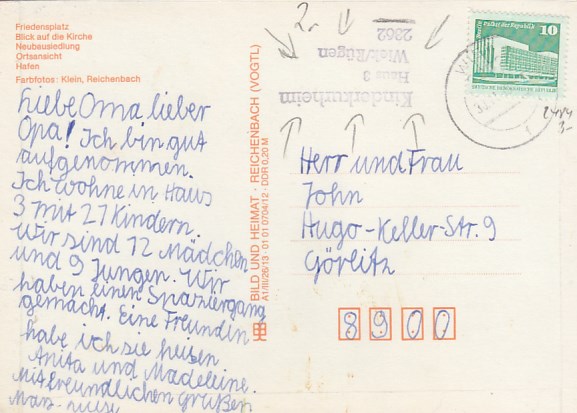 Friedensplatz
Blick auf die Kirche
Neubausiedlung
Ortsansicht
Hafen
Farbfotos: Klein, Reichenbach
Liebe Oma lieber
Opa! Ich bin gut
aufgenommen.
Ich wohne in Haus
3 mit 21 Kindern.
Wir sind 12 Mädchen
und 9 Jungen. Wir
haben einen Spaziergang
gemacht. Eine Freundin
habe ich sie heisen
Anita und Madeleine.
Mit freundlichen Grüßen
BILD UND HEIMAT · REICHENBACH (VOGTL)
A1/III/26/13 01 01 0704/12 · DDR 0,20 M
2.-
Kinderkurheim
Haus 3
Wiek/Rügen
2362
Palast der Republik
10
DEUTSCHE DEMOKRATISCHE REPUBLIK
2484
3.-
Herr und Frau
John
Hugo-Keller-Str. 9
Görlitz
8900